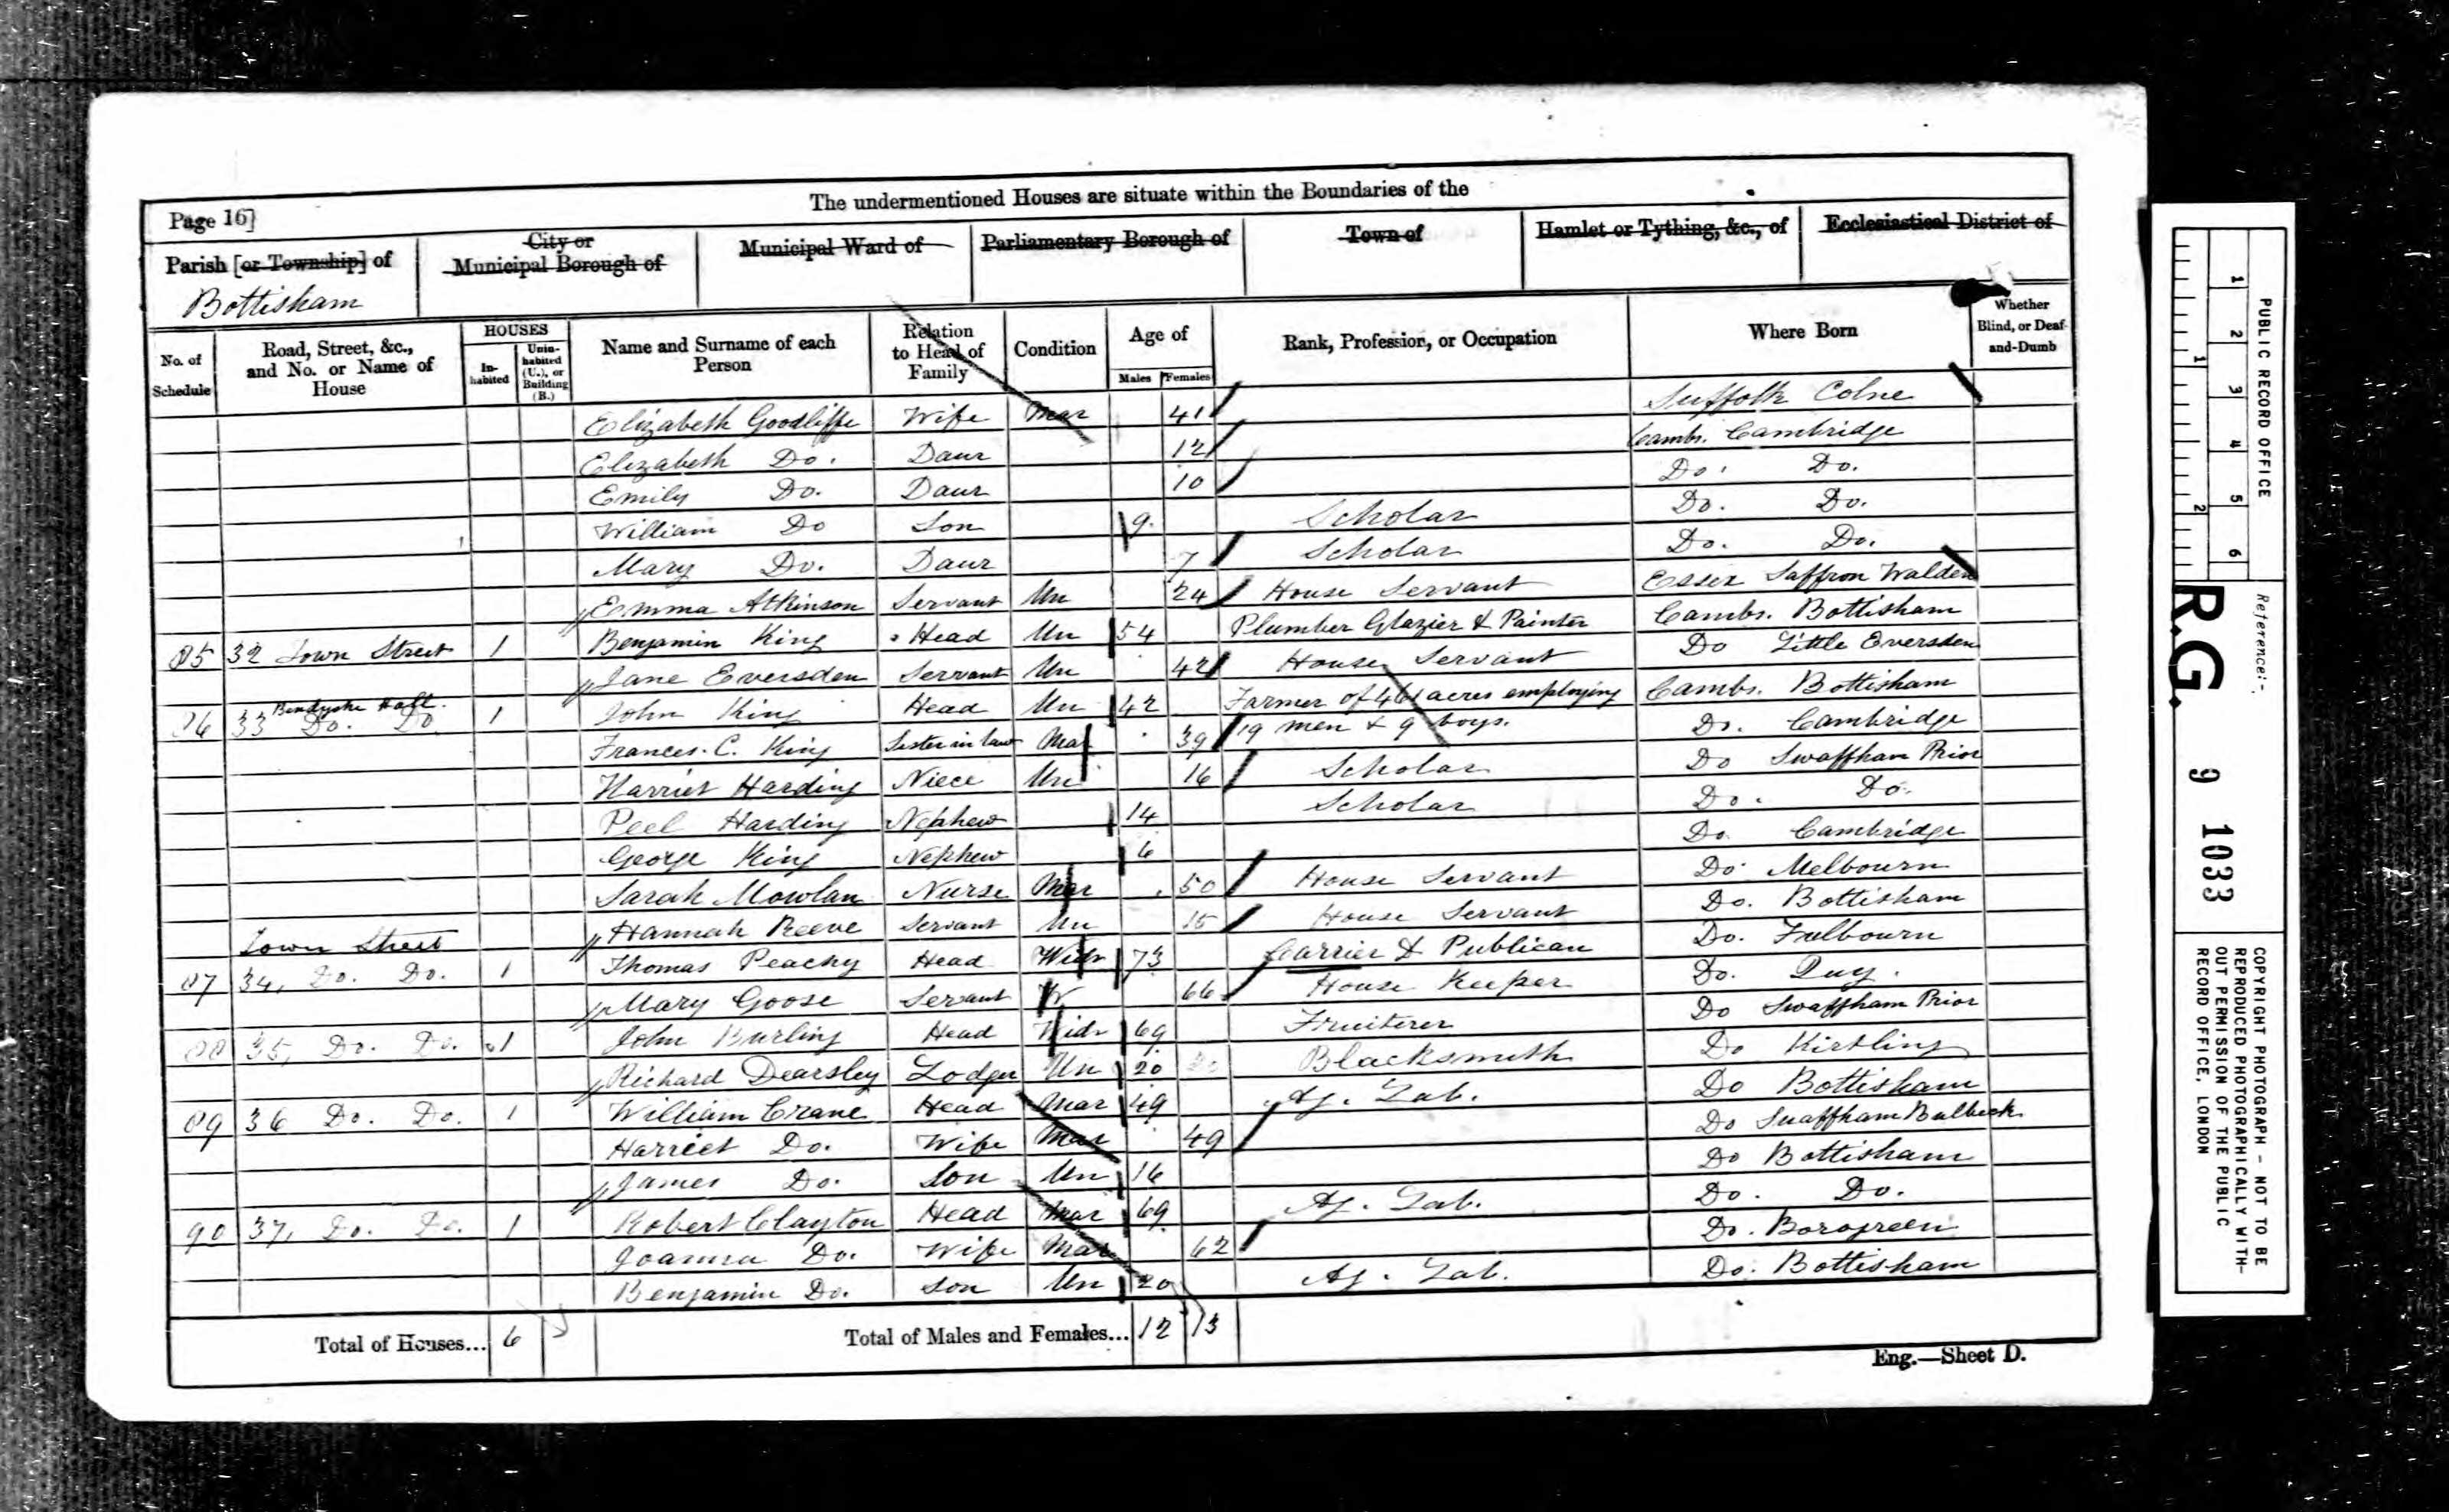 The undermentioned Houses are situate within the Boundaries of the
Page 16]
Parish [or Township] of
Bottisham
City or
Municipal Borough of
Municipal Ward of
Parliamentary Borough of
Town of
Hamlet or Tything, &c., of
Ecclesiastical District of
No. of Schedule
Road, Street, &c., and No. or Name of House
HOUSES
In-habited
Unin-habited (U.), or Building (B.)
Name and Surname of each Person
Relation to Head of Family
Condition
Age of
Males Females
Rank, Profession, or Occupation
Where Born
Whether Blind, or Deaf-and-Dumb
Elizabeth Goodliffe Wife Mar 41 Suffolk Colne
Elizabeth Do. Daur 12 Cambs. Cambridge
Emily Do. Daur 10 Do. Do.
William Do Son 9 Scholar Do. Do.
Mary Do. Daur 7 Scholar Do. Do.
Emma Atkinson Servant Un 24 House Servant Essex Saffron Walden
85 32 Town Street 1 Benjamin King Head Un 54 Plumber Glazier & Painter Cambs. Bottisham
Jane Eversden Servant Un 42 House Servant Do Little Eversden
Hall
86 33 Do. Do 1 John King Head Un 42 Farmer of 461 acres employing Cambs. Bottisham
Frances. C. King Sister in law Mar 39 19 men & 9 boys. Do. Cambridge
Harriet Harding Niece Un 16 Scholar Do Swaffham Prior
Peel Harding Nephew 14 Scholar Do. Do.
George King Nephew 6 Do. Cambridge
Sarah Mowlan Nurse Mar 50 House Servant Do Melbourn
Hannah Reeve Servant Un 15 House Servant Do. Bottisham
Town Street
87 34, Do. Do. 1 Thomas Peachy Head Widr 73 Carrier & Publican Do. Fulbourn
Mary Goose Servant W 66 House Keeper Do. Quy.
88 35, Do. Do. 1 John Burling Head Widr 69 Fruiterer Do Swaffham Prior
Richard Dearsley Lodger Un 20 Blacksmith Do Kirtling
89 36 Do. Do. 1 William Crane Head Mar 49 Ag. Lab. Do Bottisham
Harriet Do. Wife Mar 49 Do Swaffham Bulbeck
James Do. Son Un 16 Do Bottisham
90 37, Do. Do. 1 Robert Clayton Head Mar 69 Ag. Lab. Do. Do.
Joanna Do. Wife Mar 62 Do. Borogreen
Benjamin Do. Son Un 20 Ag. Lab. Do. Bottisham
Total of Houses... 6
Total of Males and Females... 12 13
Eng.—Sheet D.
PUBLIC RECORD OFFICE
1 2 3 4 5 6
1 2
Reference:-
R.G. 9 1033
COPYRIGHT PHOTOGRAPH - NOT TO BE
REPRODUCED PHOTOGRAPHICALLY WITH-
OUT PERMISSION OF THE PUBLIC
RECORD OFFICE, LONDON